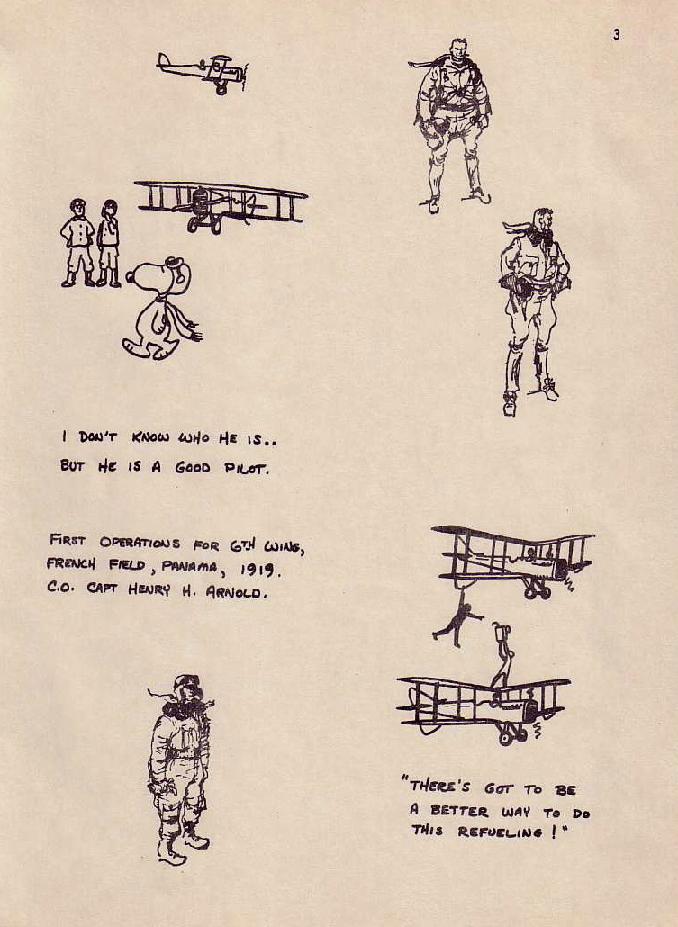 3
I DON'T KNOW WHO HE IS..
BUT HE IS A GOOD PILOT.
FIRST OPERATIONS FOR 6TH WING,
FRENCH FIELD, PANAMA, 1919.
C.O. CAPT HENRY H. ARNOLD.
"THERE'S GOT TO BE
A BETTER WAY TO DO
THIS REFUELING!"